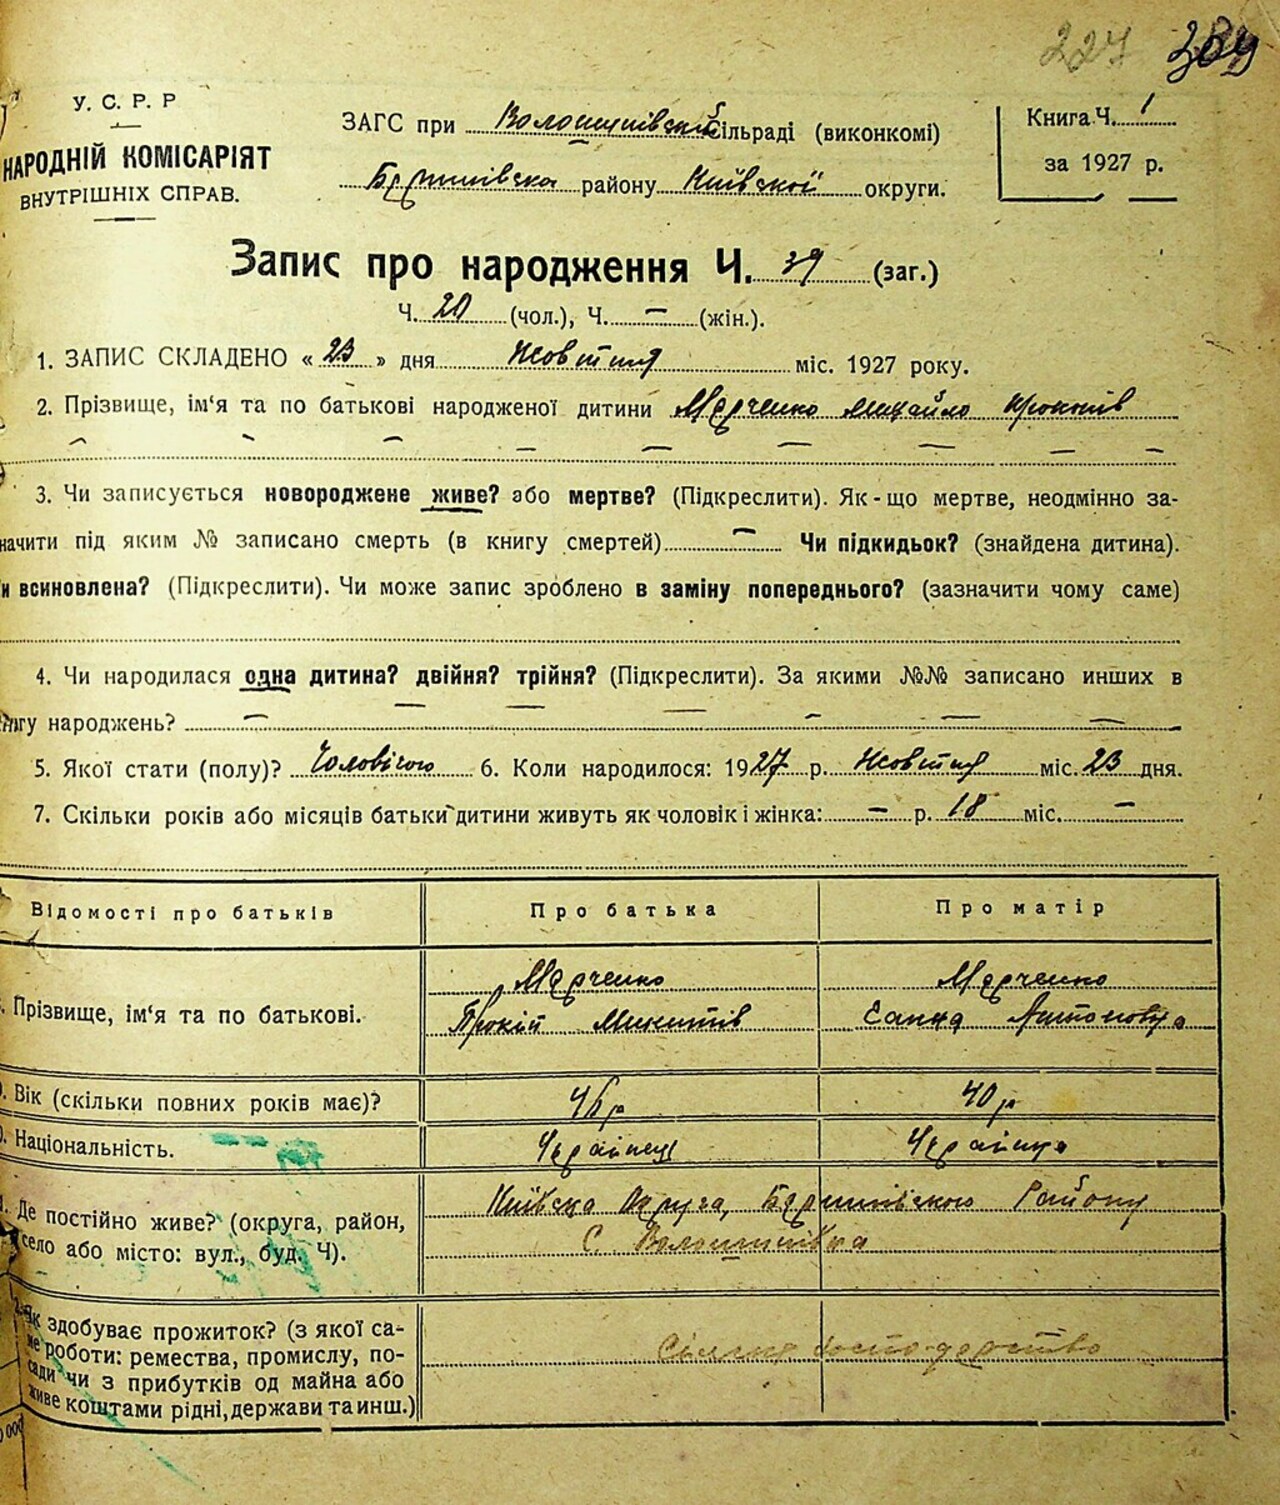 227 309
У. С. Р. Р
НАРОДНІЙ КОМІСАРІЯТ
ВНУТРІШНІХ СПРАВ.
ЗАГС при Волошинівській сільраді (виконкомі)
району Київської округи.
Книга Ч. 1
за 1927 р.
Запис про народження Ч. 39 (заг.)
Ч. 20 (чол.), Ч. — (жін.).
1. ЗАПИС СКЛАДЕНО « 23 » дня Жовтня міс. 1927 року.
2. Прізвище, ім‘я та по батькові народженої дитини Марченко Михайло Прокопів
3. Чи записується новороджене живе? або мертве? (Підкреслити). Як-що мертве, неодмінно за-
начити під яким № записано смерть (в книгу смертей) — Чи підкидьок? (знайдена дитина).
и всиновлена? (Підкреслити). Чи може запис зроблено в заміну попереднього? (зазначити чому саме)
4. Чи народилася одна дитина? двійня? трійня? (Підкреслити). За якими №№ записано инших в
нигу народжень? — — — — — — —
5. Якої стати (полу)? Чоловічого 6. Коли народилося: 1927 р. Жовтня міс. 23 дня.
7. Скільки років або місяців батьки дитини живуть як чоловік і жінка: — р. 18 міс. —
Відомості про батьків Про батька Про матір
Марченко Марченко
Прізвище, ім‘я та по батькові. Прокіп Микитів Ганна Антоновна
Вік (скільки повних років має)? 46 р 40 р
Національність. Українец Українка
Де постійно живе? (округа, район, Київска Округа, Району
село або місто: вул., буд. Ч). С. Волошинівка
Як здобуває прожиток? (з якої са-
ме роботи: ремества, промислу, по- Сільське господарство
сади чи з прибутків од майна або
живе коштами рідні, держави та инш.)